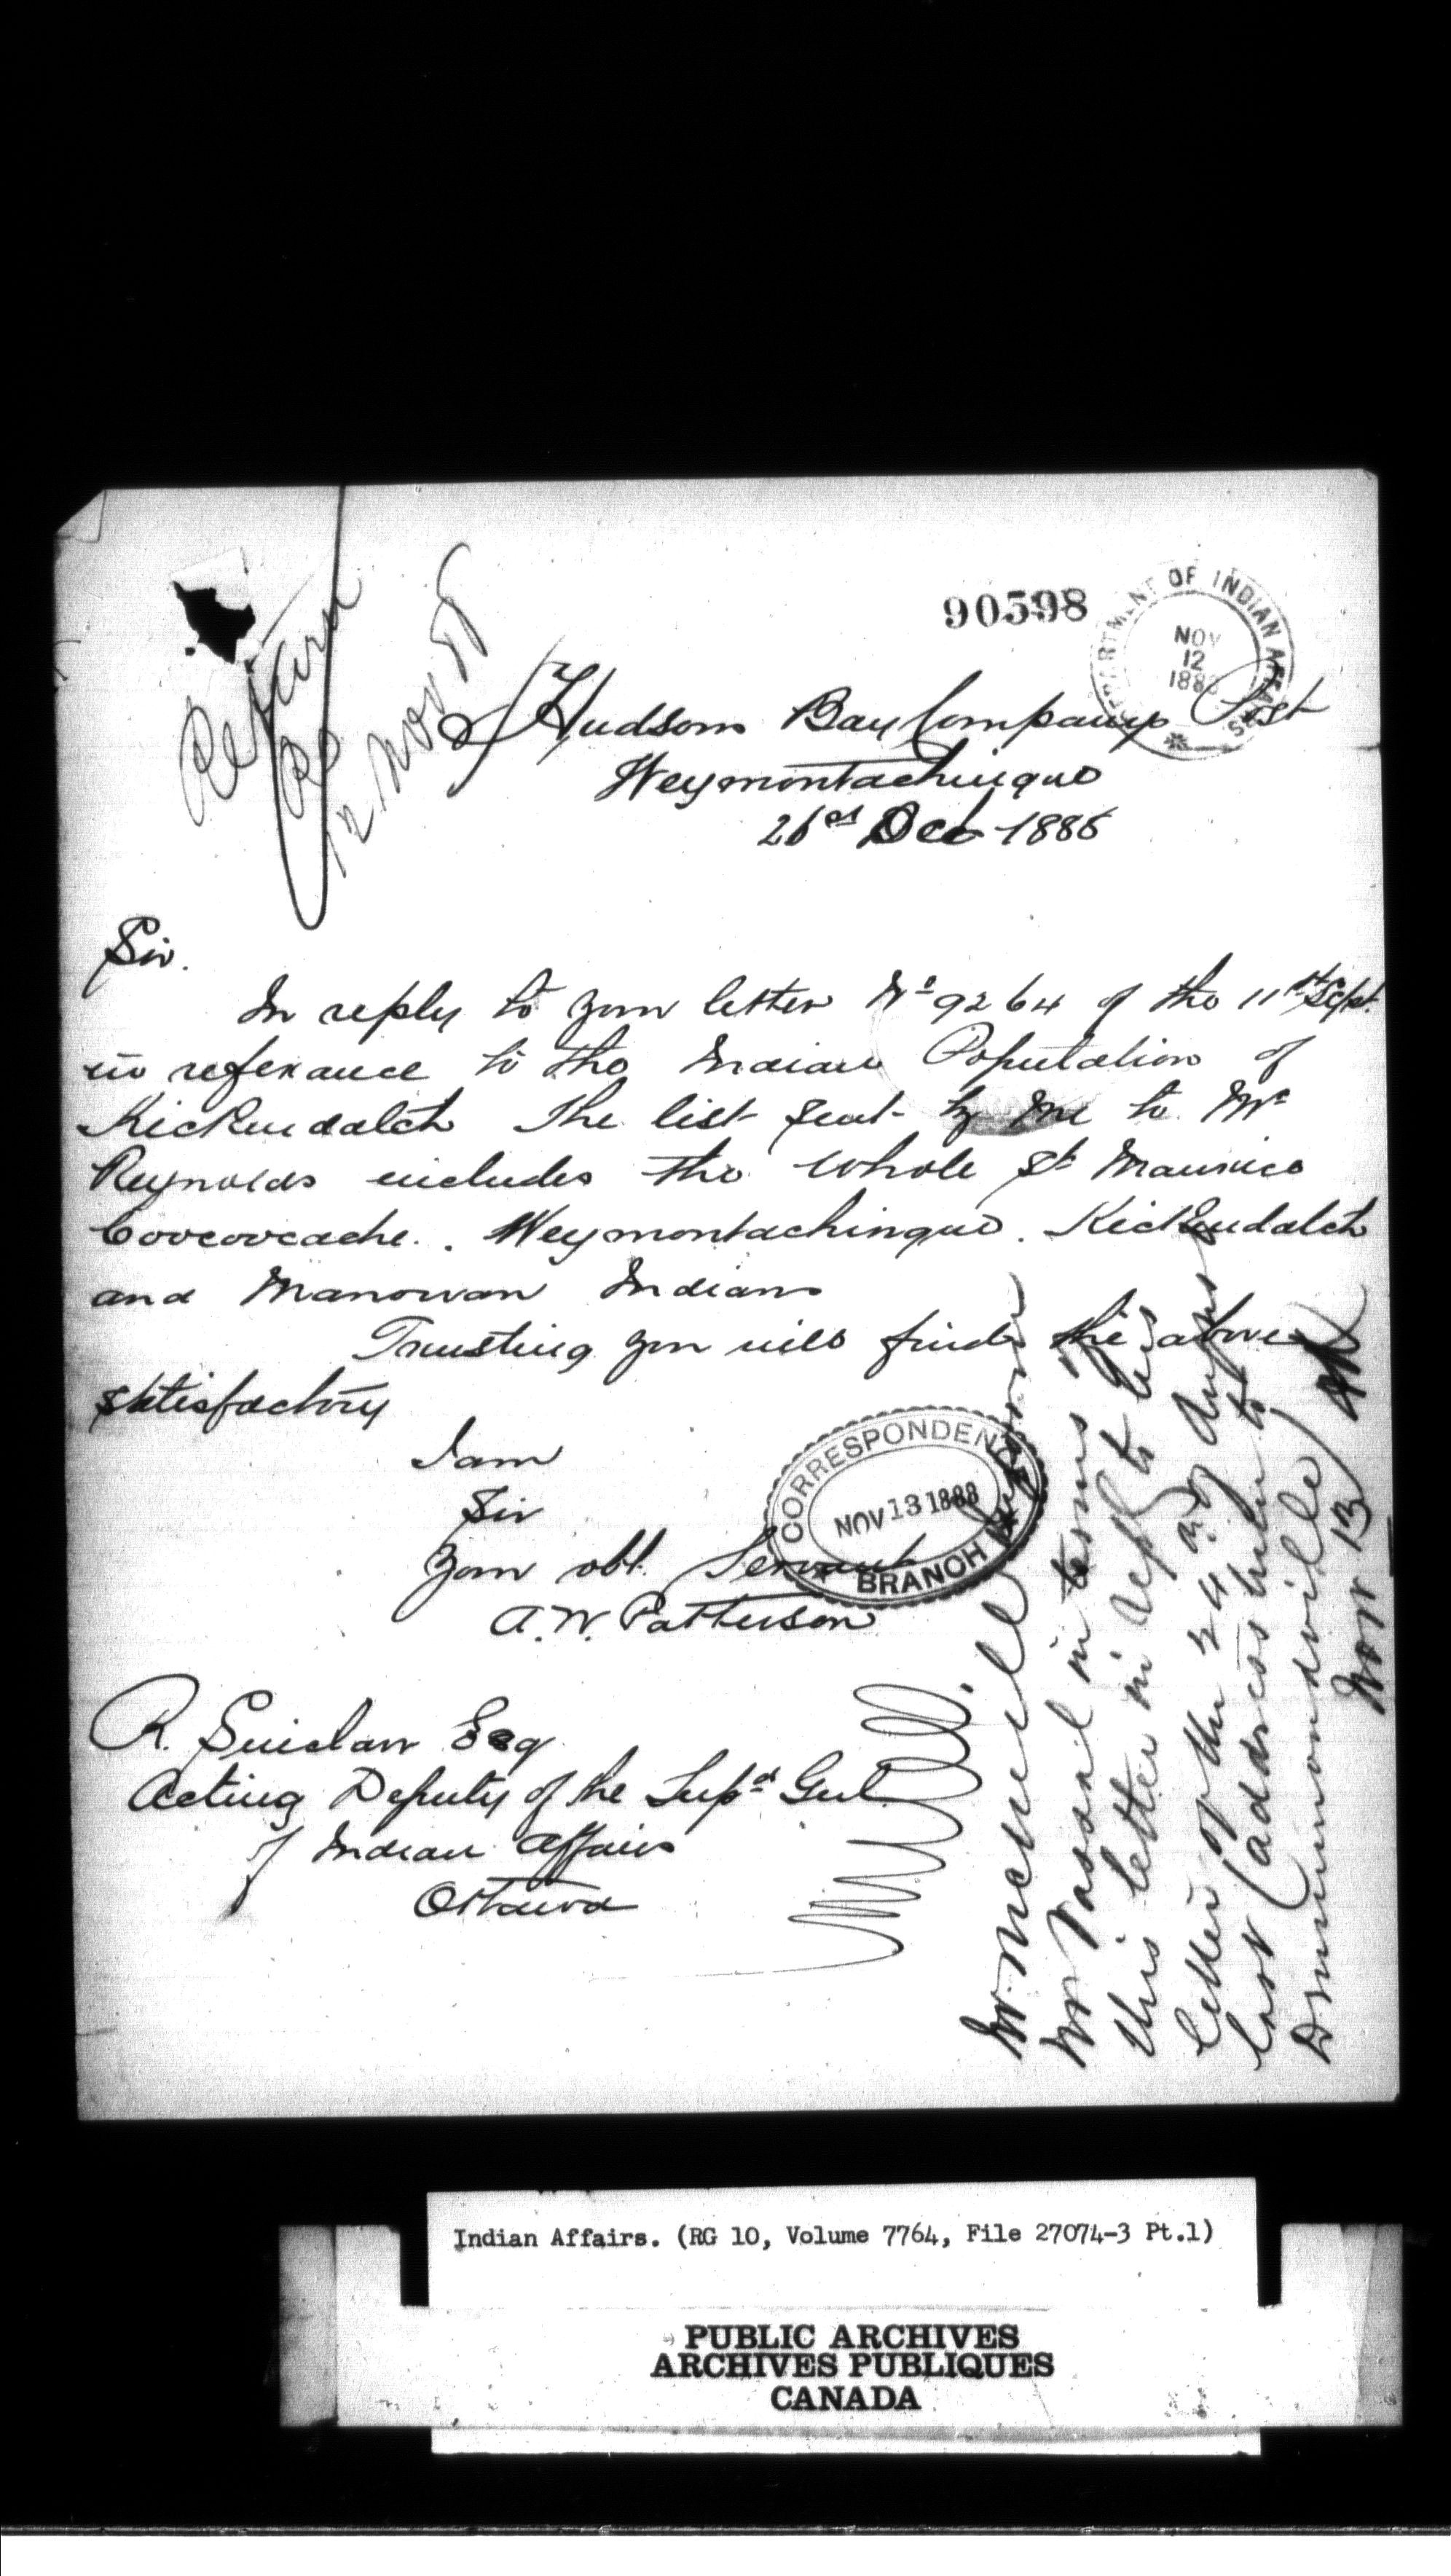 90598
DEPARTMENT OF INDIAN AFFAIRS
NOV
12
1888
Return
12 Nov 88
Hudsons Bay Company Post
Weymontachingue
26th Oct 1888
Sir.
In reply to your letter No 9264 of the 11th Sept.
in referance to the Indian Population of
Kickendatch The list sent by me to Mr
Reynolds includes the whole St Maurice
Coocoocache. . Weymontachingue. Kickendatch
and Manowan Indians
Trusting you will find the above
satisfactory
I am
Sir
Your obt. Servant
A. W. Patterson
CORRESPONDENCE
NOV 13 1888
BRANCH
R. Sinclair Esq
Acting Deputy of the Supd Genl.
of Indian Affairs
Ottawa
Mr McNeill
Mr Vassal in terms of
this letter in reply to his
letter of the 24th of August
last (address him to
Drummondville)
Nov 13
Indian Affairs. (RG 10, Volume 7764, File 27074-3 Pt.1)
PUBLIC ARCHIVES
ARCHIVES PUBLIQUES
CANADA